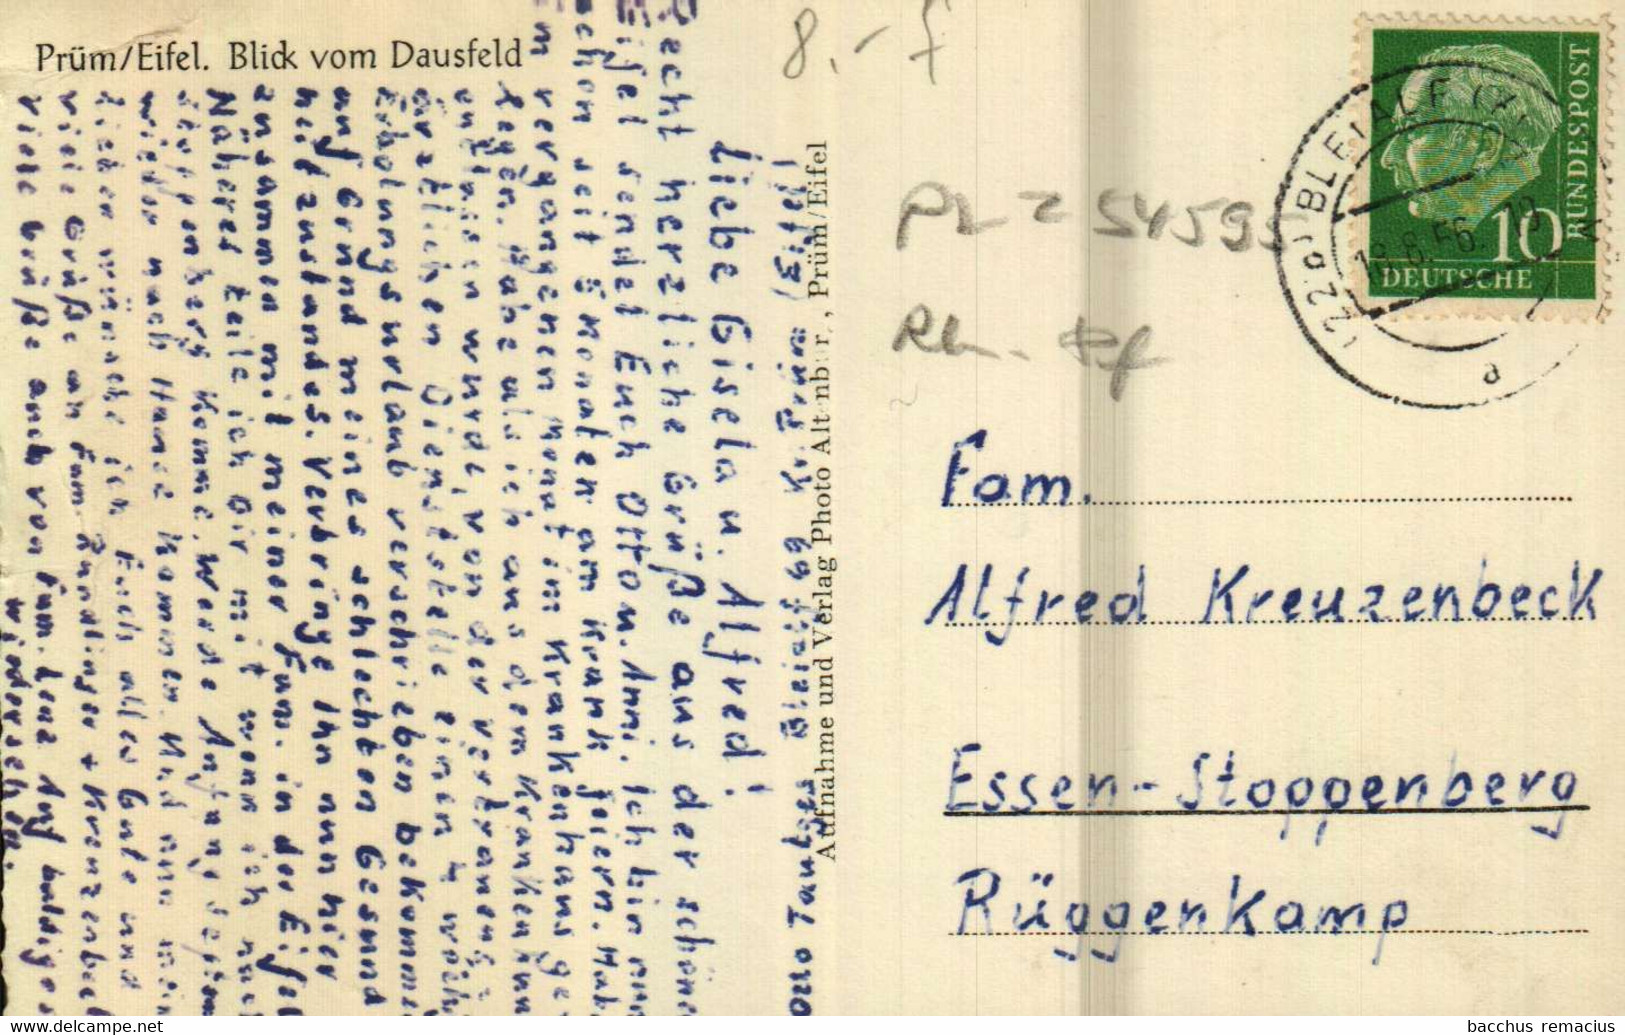 Prüm/Eifel. Blick vom Dausfeld
8.-
Aufnahme und Verlag Photo Altenburg, Prüm/Eifel
PLZ 54595
DEUTSCHE
BUNDESPOST
10
(22b) BLEIALF
18.8.56. 19
a
Fam.
Alfred Kreuzenbeck
Essen-Stoppenberg
Rüggenkamp
Bleialf 69 Kr. Prüm (Eifel)
Liebe Gisela u. Alfred!
Recht herzliche Grüße aus der schönen
Eifel sendet Euch Otto u. Anni. Ich bin nun
schon seit 5 Monaten am krank feiern. Habe
im vergangenen Monat im Krankenhaus ge-
legen. Habe als ich aus dem Krankenhaus
entlassen wurde, von der vertrauens-
ärztlichen Dienststelle einen 4 wöch.
Erholungsurlaub verschrieben bekommen
auf Grund meines schlechten Gesund-
heitzustandes. Verbringe ihn nun hier
zusammen mit meiner Fam. in der Eifel
Näheres teile ich Dir mit wenn ich nach
Stoppenberg komme. Werde Anfang
wieder nach Hause kommen. Und nun meine
Lieben wünsche ich Euch alles Gute und
viele Grüße an Fam. + Kreuzenbeck
viele Grüße auch von Fam. Lenz Auf baldiges
Wiedersehen.
bacchus remacius